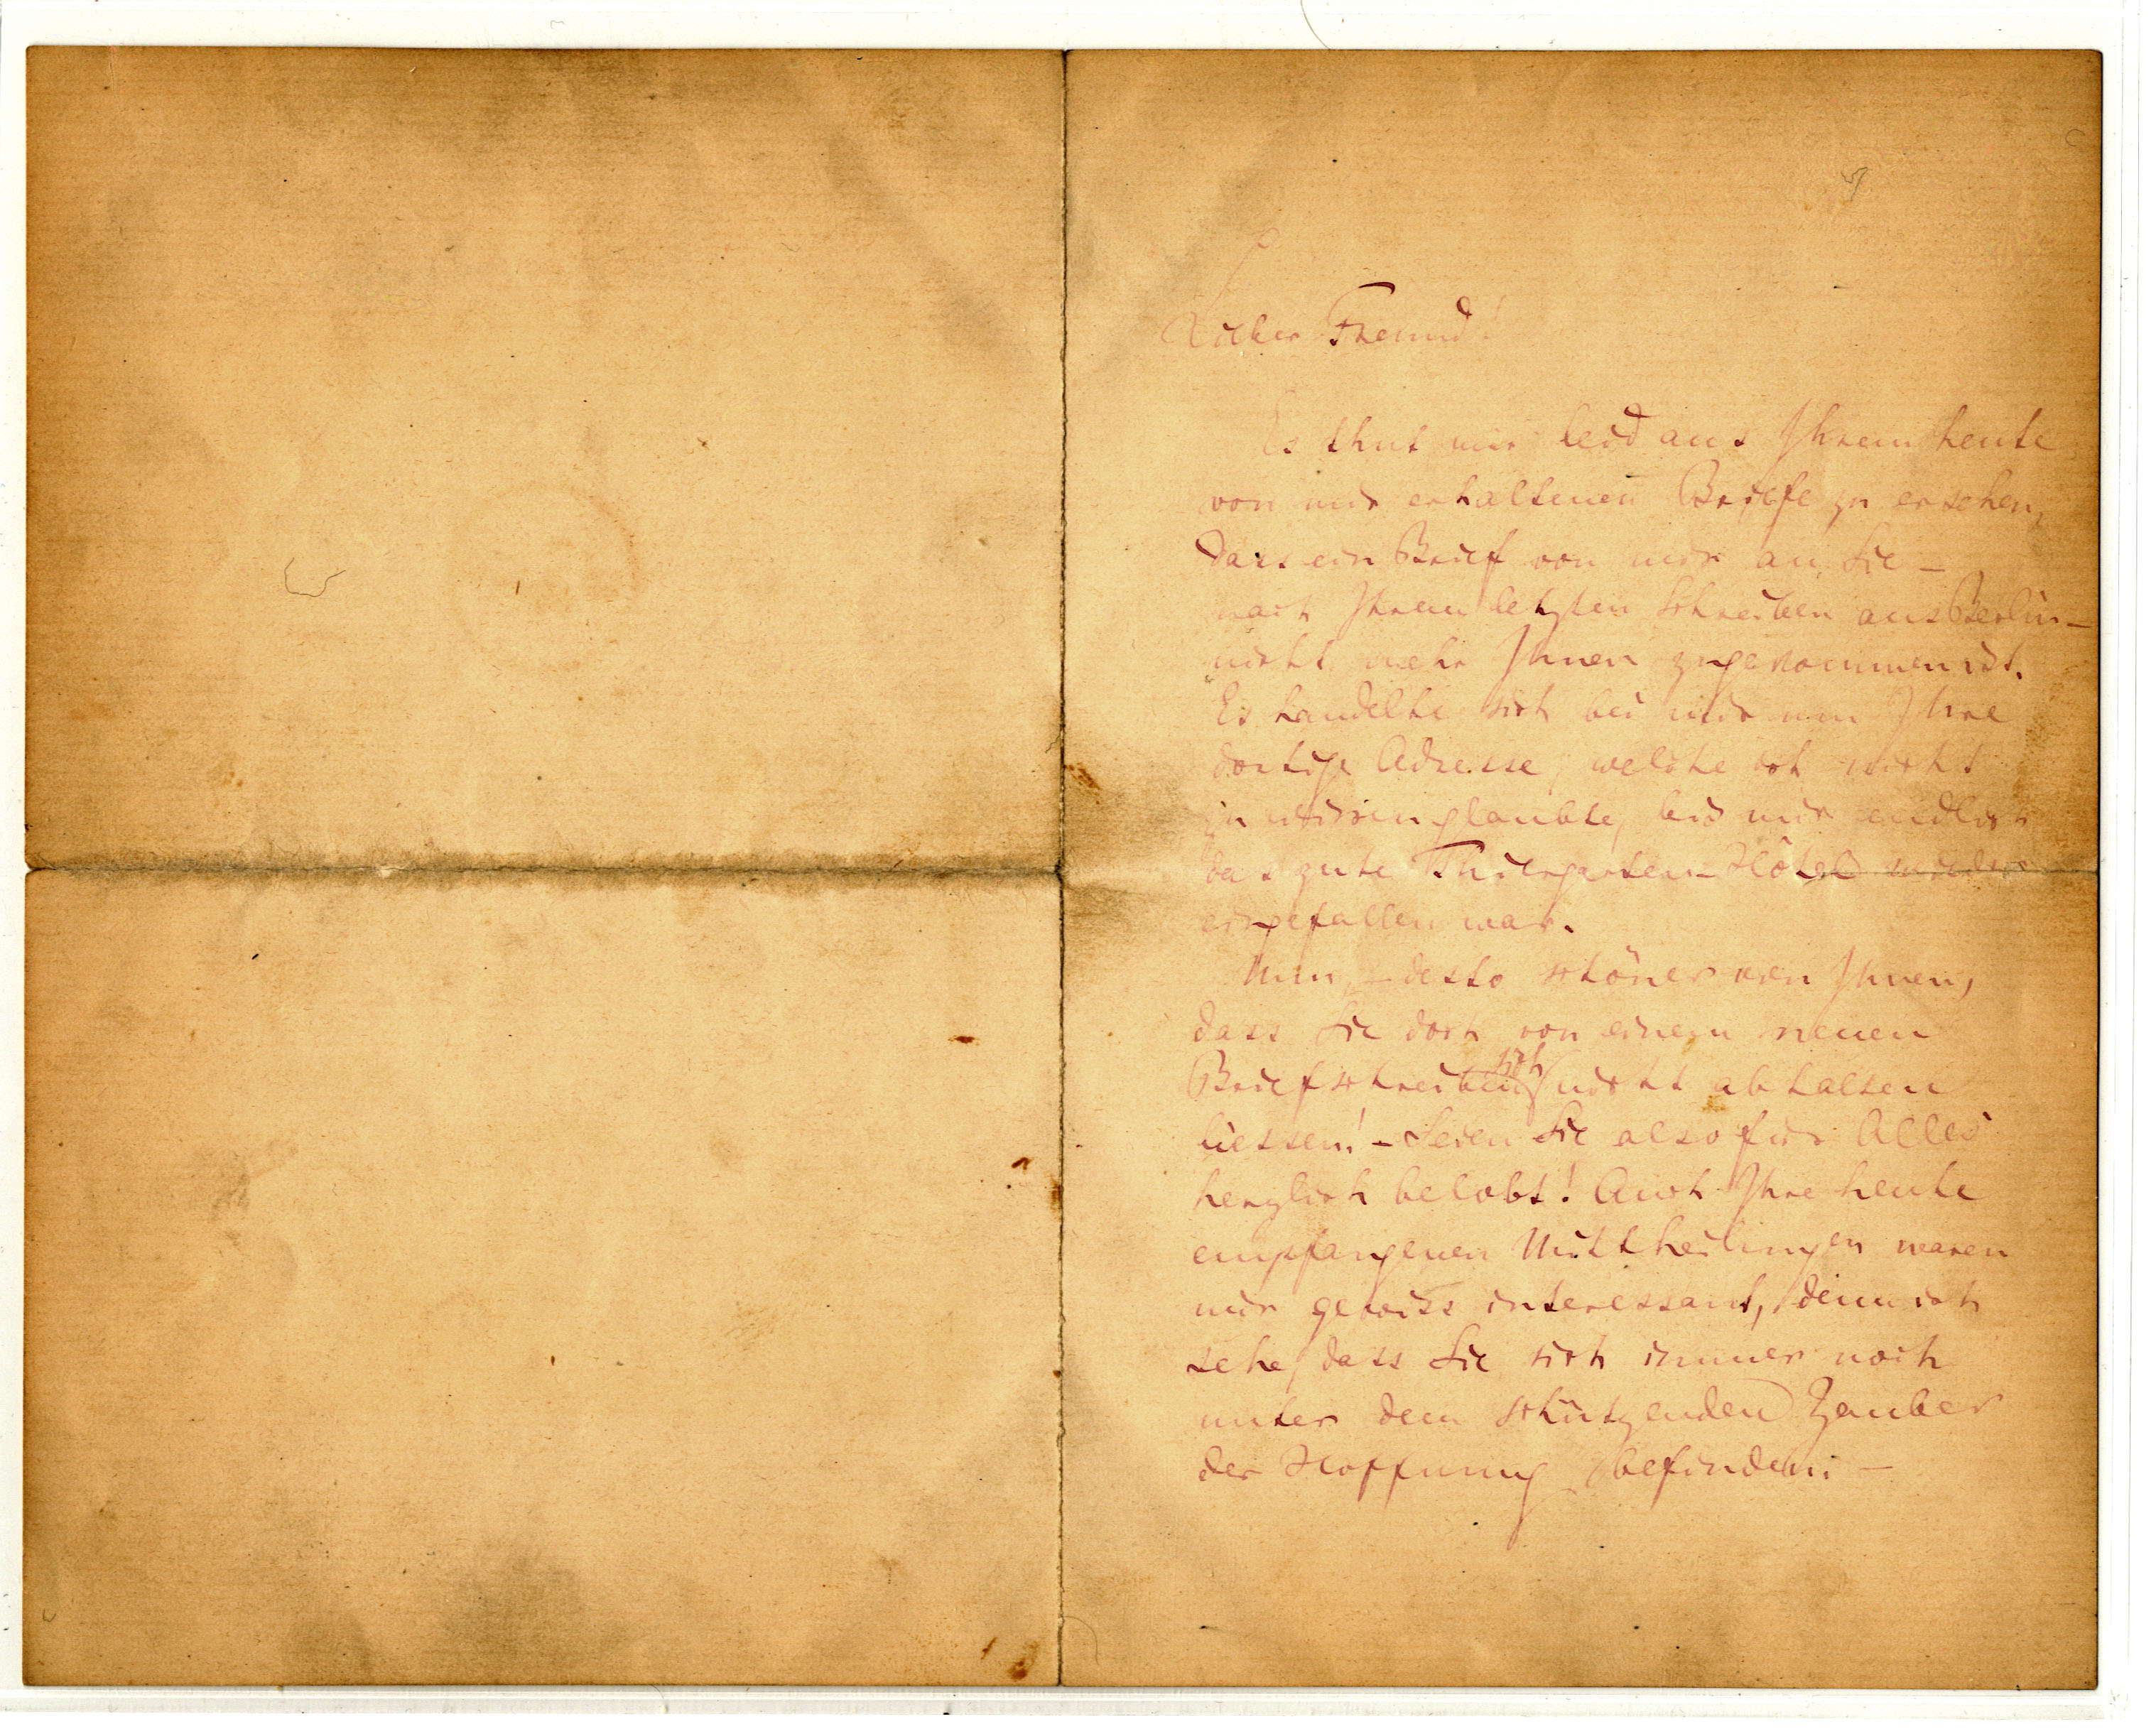 Lieber Freund!
Es thut mir leid aus Ihrem heute
von mir erhaltenen Briefe zu ersehen,
dass ein Brief von mir an Sie –
nach Ihrem letzten Schreiben aus Berlin –
nicht mehr Ihnen zugekommen ist.
Es handelte sich bei mir um Ihre
dortige Adresse, welche ich nicht
zu wissen glaubte, bis mir endlich
das gute Thiergarten-Hôtel wieder
eingefallen war.
Nun, – desto schöner von Ihnen,
dass Sie doch von einem neuen
Briefschreiben sich nicht abhalten
liessen! – Seien Sie also für Alles
herzlich belobt! Auch Ihre heute
empfangenen Mittheilungen waren
mir gewiss interessant, denn ich
sehe, dass Sie sich immer noch
unter dem schützenden Zauber
der Hoffnung befinden. –